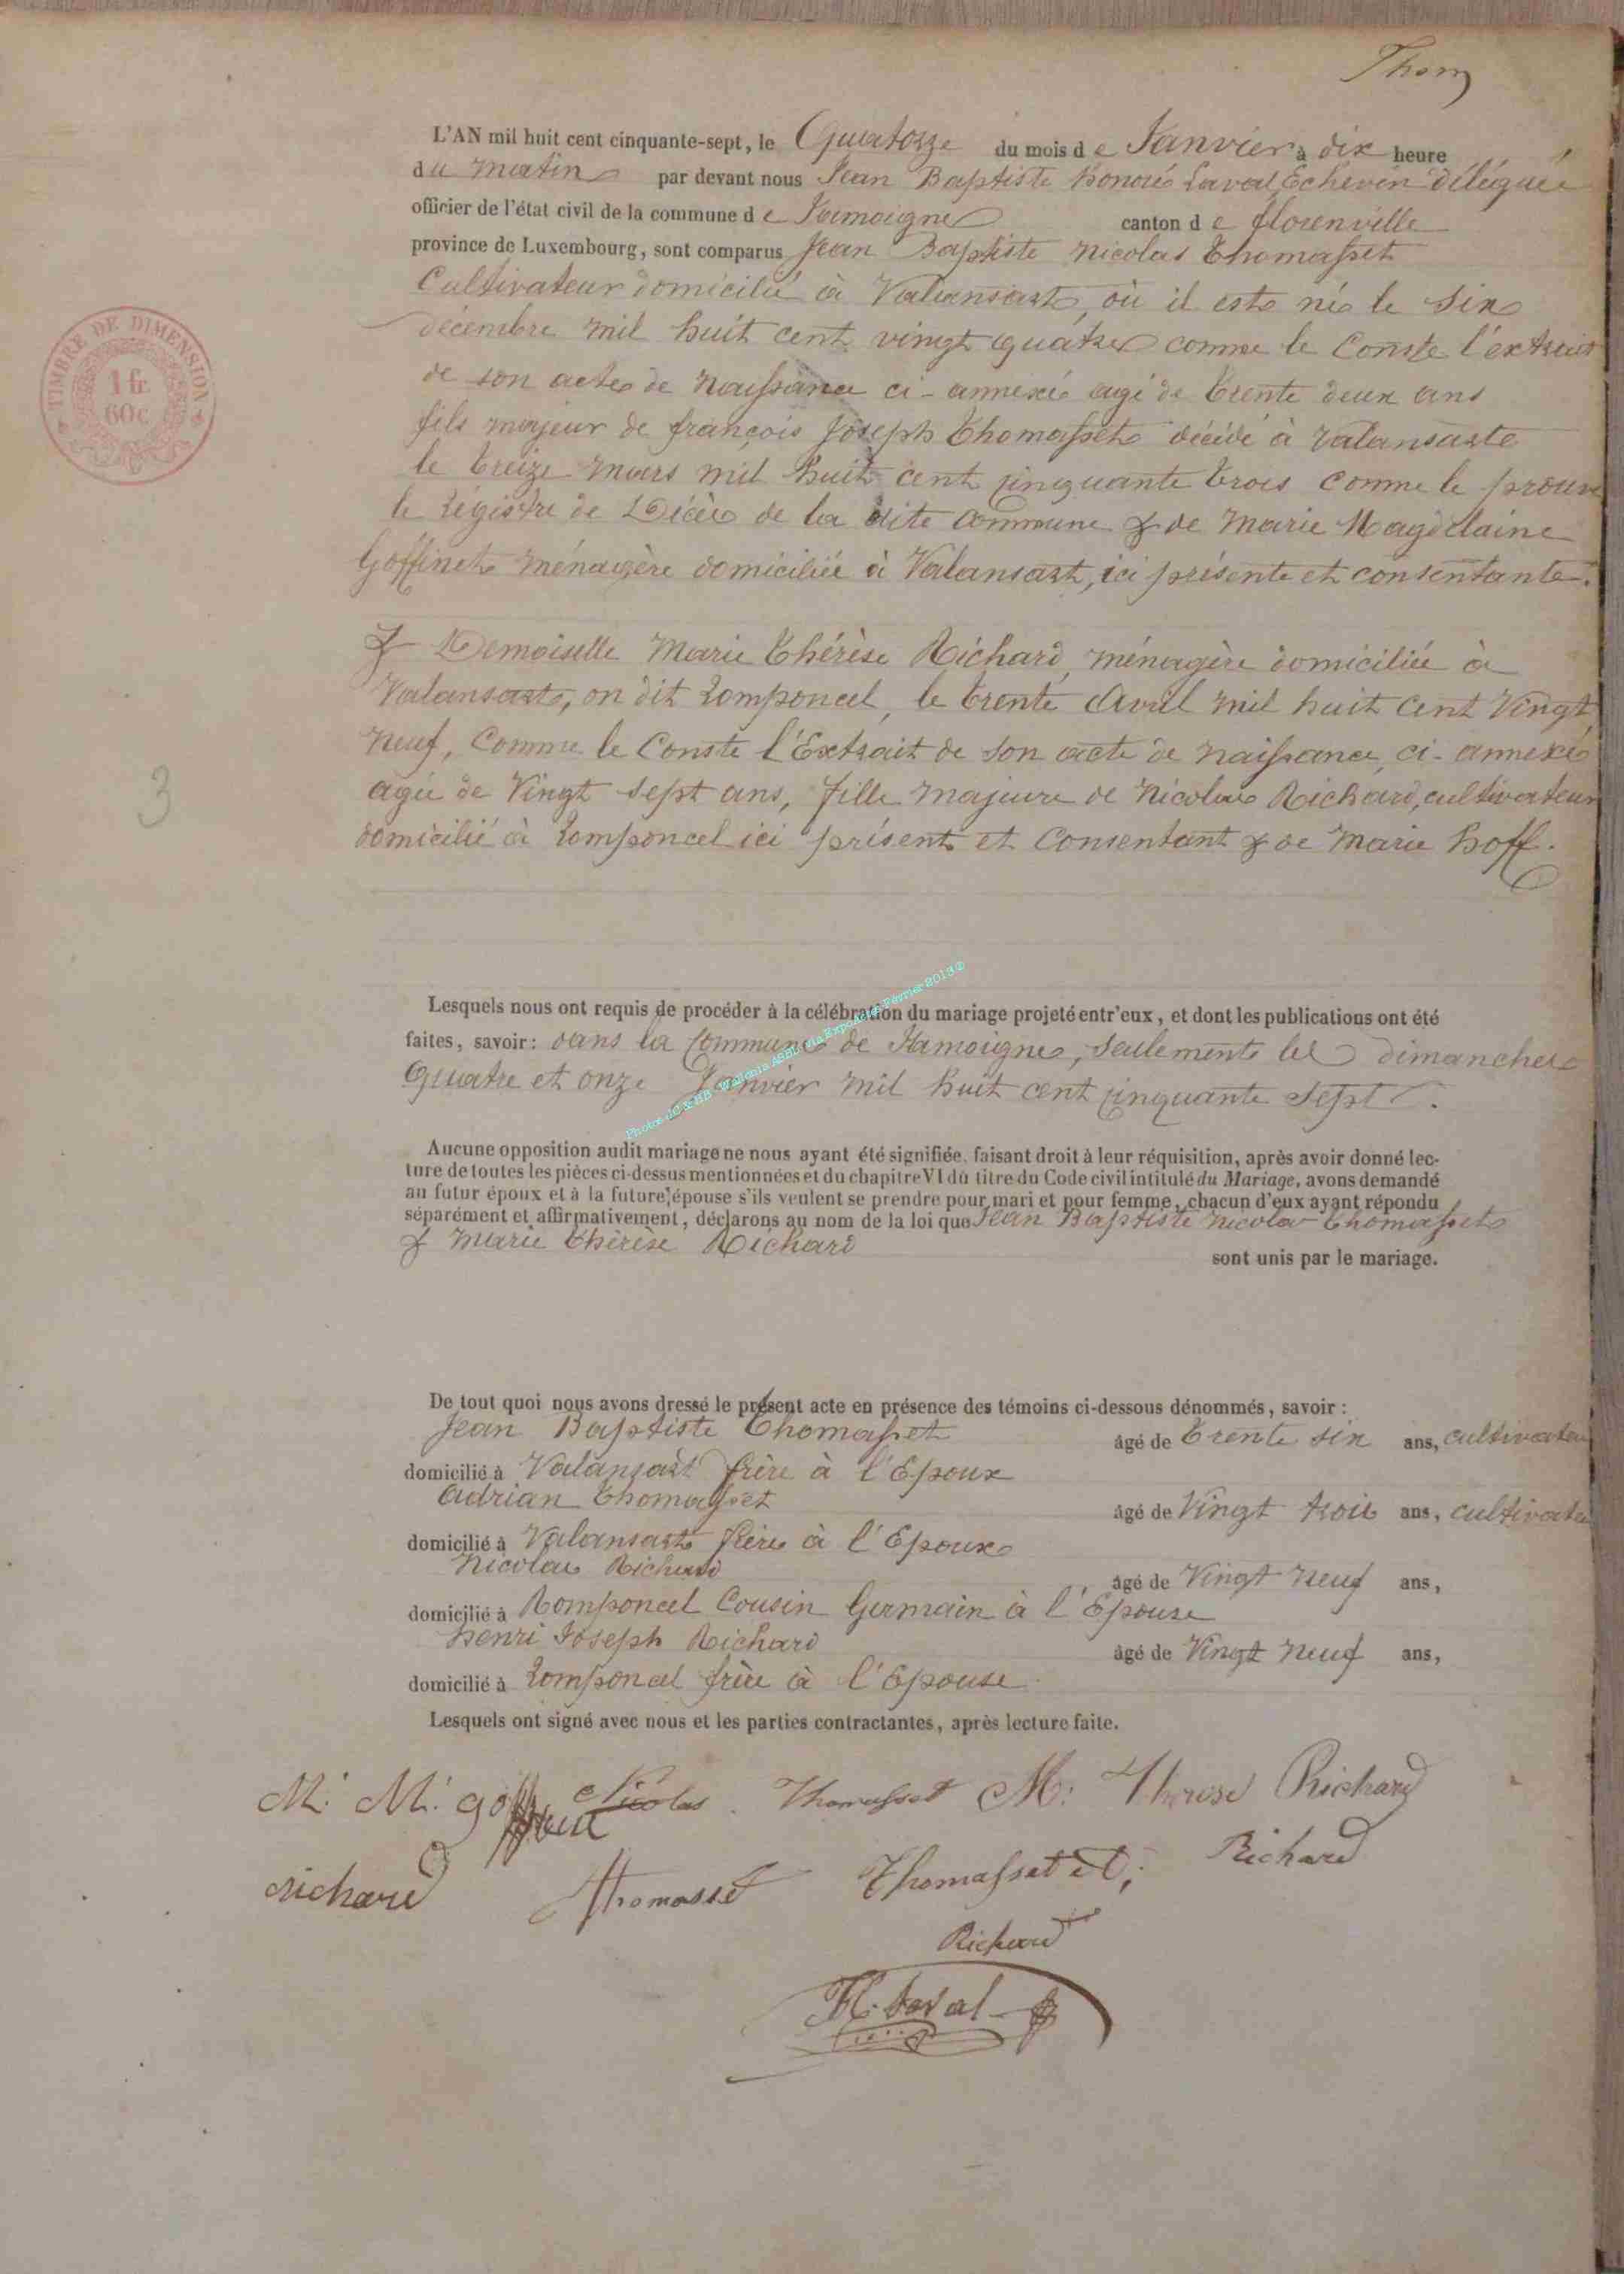 Thom
L'AN mil huit cent cinquante-sept, le Quatorze du mois de Janvier à dix heure
du matin par devant nous Jean Baptiste honoré Laval Echevin délégué
officier de l'état civil de la commune de Jamoigne canton de florenville
province de Luxembourg, sont comparus Jean Baptiste Nicolas Thomasset
Cultivateur domicilié à Valansart, où il est né le six
décembre mil huit cent vingt quatre comme le Conste l'extrait
de son acte de Naissance ci-annexé agé de trente deux ans
fils majeur de françois Joseph Thomasset décédé à Valansart
le treize mars mil huit cent cinquante trois comme le prouve
le régistre de Décès de la dite commune & de Marie Magdelaine
Goffinet ménagère domiciliée à Valansart, ici présente et consentante.
& Demoiselle Marie Thérèse Richard, ménagère domiciliée à
Valansart, on dit Romponcel, le trente Avril mil huit cent Vingt
Neuf, Comme le Conste l'Extrait de son acte de naissance, ci-annexé
agée de Vingt sept ans, fille majeure de Nicolas Richard, cultivateur
domicilié à Romponcel ici présent et Consentant & de Marie hoff.
3
TIMBRE DE DIMENSION
1 fr.
60 c
Lesquels nous ont requis de procéder à la célébration du mariage projeté entr'eux, et dont les publications ont été
faites, savoir: dans la Commune de Jamoigne, seulement les dimanches
Quatre et onze Janvier mil huit cent cinquante sept.
Photos JC & HB - Wallonia ASBL via Expoactes Février 2013 ©
Aucune opposition audit mariage ne nous ayant été signifiée, faisant droit à leur réquisition, après avoir donné lec-
ture de toutes les pièces ci-dessus mentionnées et du chapitre VI du titre du Code civil intitulé du Mariage, avons demandé
au futur époux et à la future épouse s'ils veulent se prendre pour mari et pour femme, chacun d'eux ayant répondu
séparément et affirmativement, déclarons au nom de la loi que Jean Baptiste Nicolas Thomasset
& Marie Thérèse Richard sont unis par le mariage.
De tout quoi nous avons dressé le présent acte en présence des témoins ci-dessous dénommés, savoir:
Jean Baptiste Thomasset âgé de Trente six ans, cultivateur
domicilié à Valansart frère à l'Epoux
Adrian Thomasset âgé de Vingt trois ans, cultivateu
domicilié à Valansart frère à l'Epoux
Nicolas Richard âgé de Vingt Neuf ans,
domicilié à Romponcel Cousin Germain à l'Epouse
henri Joseph Richard âgé de Vingt Neuf ans,
domicilié à Romponcel frère à l'Epouse
Lesquels ont signé avec nous et les parties contractantes, après lecture faite.
M. M. goffinet Nicolas Thomasset M. Therese Richard
Richard Thomasset Thomasset Richard
Richard
H. Laval